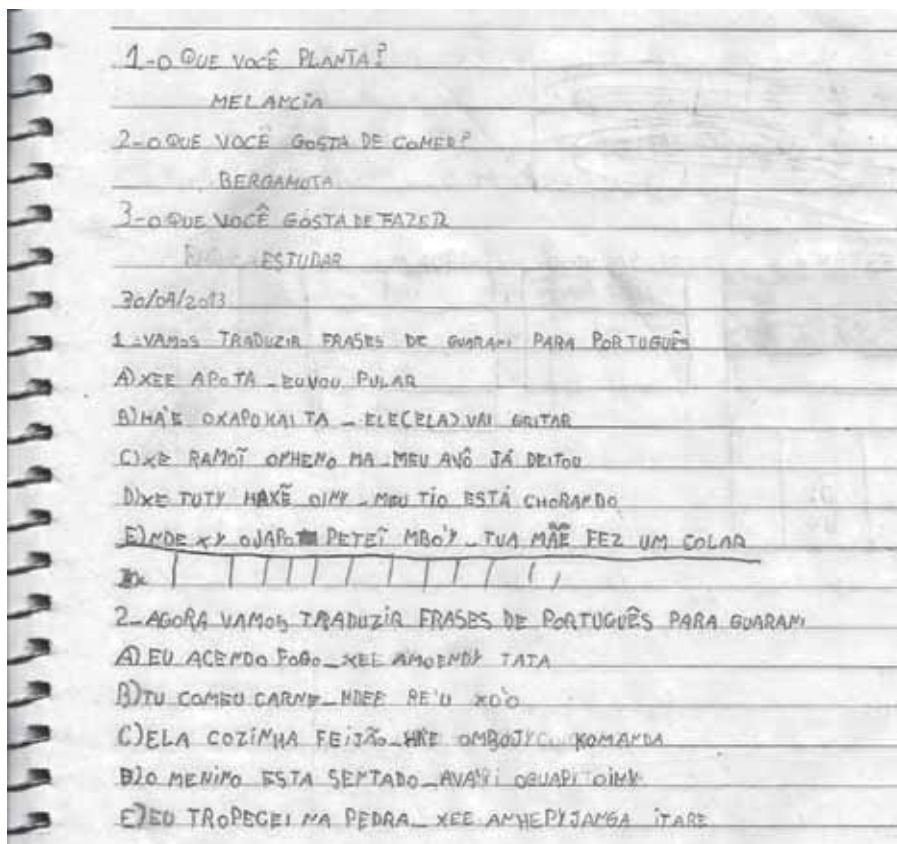 1-O QUE VOCÊ PLANTA?
MELANCIA
2-O QUE VOCÊ GOSTA DE COMER?
BERGAMOTA
3-O QUE VOCÊ GOSTA DE FAZER
ESTUDAR
30/04/2013
1-VAMOS TRADUZIR FRASES DE GUARANI PARA PORTUGUÊS
A) XEE APOTA _ EU VOU PULAR
B) HA'E OXAPOKAI TA _ ELE(ELA) VAI GRITAR
C) XE RAMOĨ OMHENO MA _ MEU AVÔ JÁ DEITOU
D) XE TUTY HAXẼ OINY _ MEU TIO ESTÁ CHORANDO
E) NDE XY OJAPO PETEĨ MBO'Y _ TUA MÃE FEZ UM COLAR
2-AGORA VAMOS TRADUZIR FRASES DE PORTUGUÊS PARA GUARANI
A) EU ACENDO FOGO _ XEE AMOENDY TATA
B) TU COMEU CARNE _ NDEE RE'U XO'O
C) ELA COZINHA FEIJÃO _ HA'E KOMANDA
O MENINO ESTA SENTADO _ OGUAPI OINY
E) EU TROPECEI NA PEDRA _ XEE ANHEPYJANGA ITARE